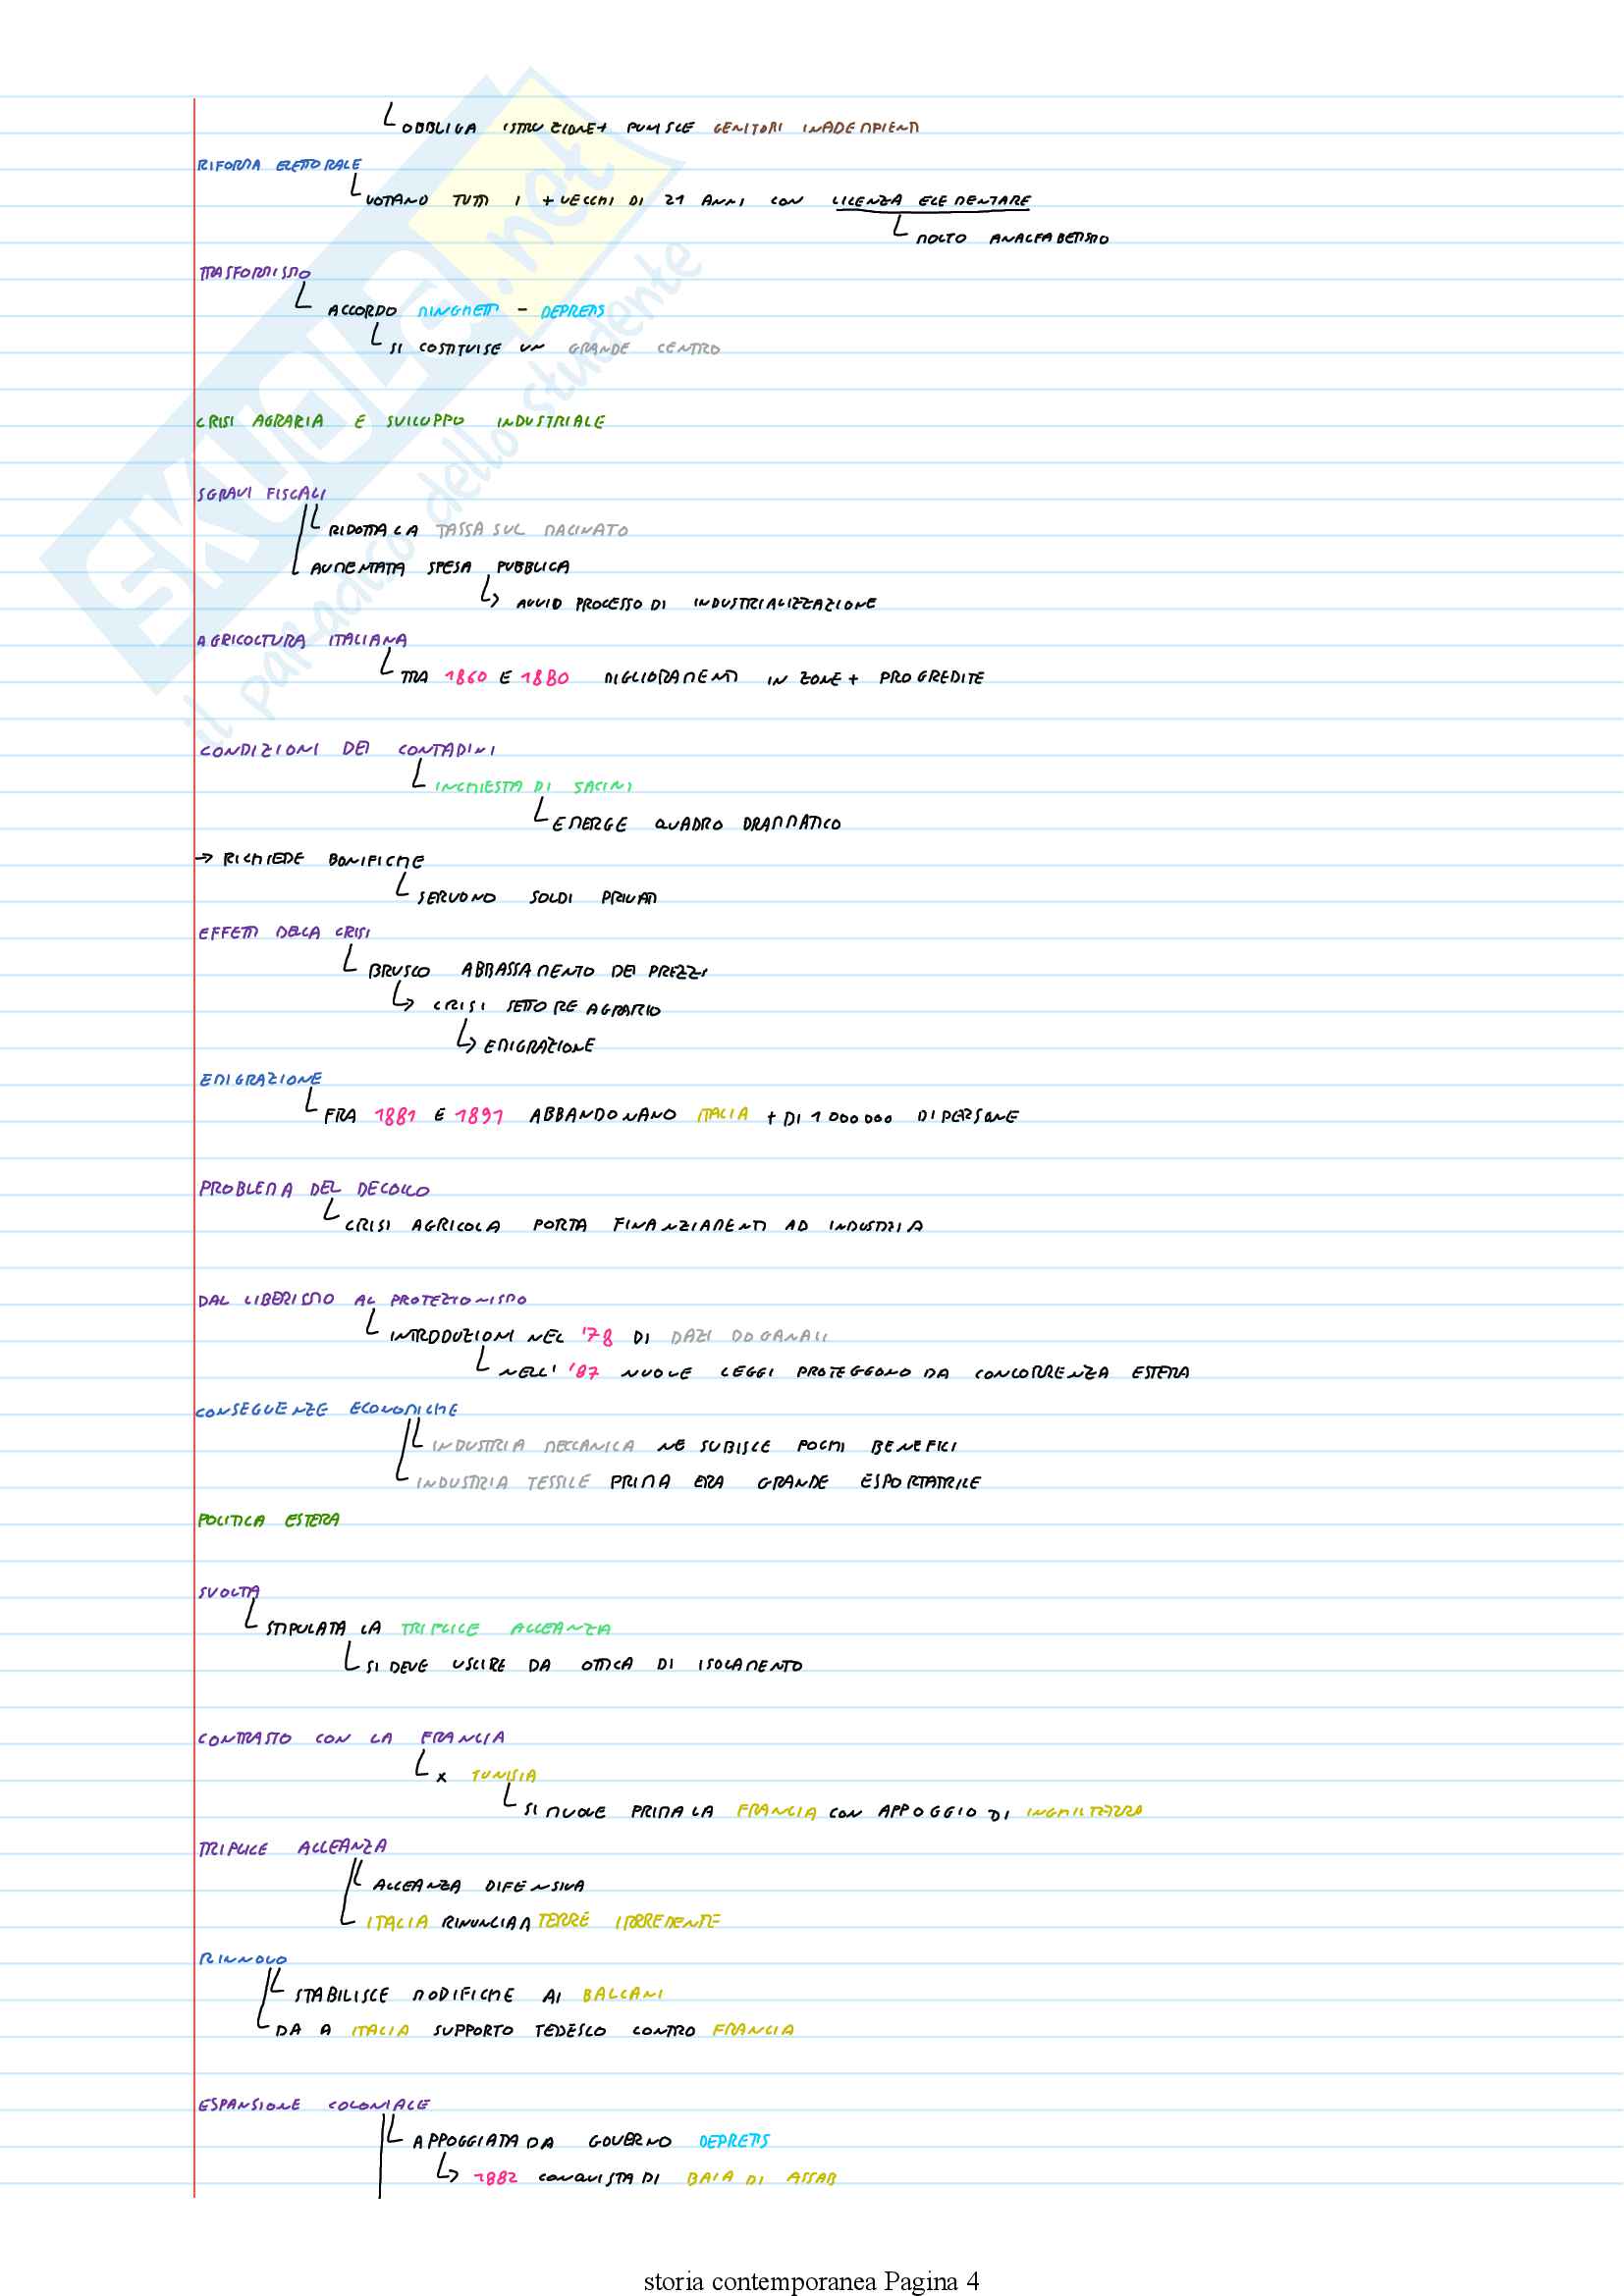 OBBLIGA ISTRUZIONE+ PUNISCE GENITORI INADEMPIENTI
RIFORMA ELETTORALE
VOTANO TUTTI I + VECCHI DI 21 ANNI CON LICENZA ELEMENTARE
MOLTO ANALFABETISMO
TRASFORMISMO
ACCORDO MINGHETTI - DEPRETIS
SI COSTITUISE UN GRANDE CENTRO
CRISI AGRARIA E SVILUPPO INDUSTRIALE
SGRAVI FISCALI
RIDOTTA LA TASSA SUL MACINATO
AUMENTATA SPESA PUBBLICA
AVVIO PROCESSO DI INDUSTRIALIZZAZIONE
AGRICOLTURA ITALIANA
TRA 1860 E 1880 MIGLIORAMENTI IN ZONE + PROGREDITE
CONDIZIONI DEI CONTADINI
INCHIESTA DI JACINI
EMERGE QUADRO DRAMMATICO
→ RICHIEDE BONIFICHE
SERVONO SOLDI PRIVATI
EFFETTI DELLA CRISI
BRUSCO ABBASSAMENTO DEI PREZZI
CRISI SETTORE AGRARIO
EMIGRAZIONE
EMIGRAZIONE
FRA 1881 E 1891 ABBANDONANO ITALIA + DI 1 000 000 DI PERSONE
PROBLEMA DEL DECOLLO
CRISI AGRICOLA PORTA FINANZIAMENTI AD INDUSTRIA
DAL LIBERISMO AL PROTEZIONISMO
INTRODUZIONI NEL '78 DI DAZI DOGANALI
NELL' '87 NUOVE LEGGI PROTEGGONO DA CONCORRENZA ESTERA
CONSEGUENZE ECONOMICHE
INDUSTRIA MECCANICA NE SUBISCE POCHI BENEFICI
INDUSTRIA TESSILE PRIMA ERA GRANDE ESPORTATRICE
POLITICA ESTERA
SVOLTA
STIPULATA LA TRIPLICE ALLEANZA
SI DEVE USCIRE DA OTTICA DI ISOLAMENTO
CONTRASTO CON LA FRANCIA
x TUNISIA
SI MUOVE PRIMA LA FRANCIA CON APPOGGIO DI INGHILTERRA
TRIPLICE ALLEANZA
ALLEANZA DIFENSIVA
ITALIA RINUNCIA A TERRE IRREDENTE
RINNOVO
STABILISCE MODIFICHE AI BALCANI
DA A ITALIA SUPPORTO TEDESCO CONTRO FRANCIA
ESPANSIONE COLONIALE
APPOGGIATA DA GOVERNO DEPRETIS
1882 CONQUISTA DI BAIA DI ASSAB
storia contemporanea Pagina 4
SKUOLA.net
il paradiso dello studente